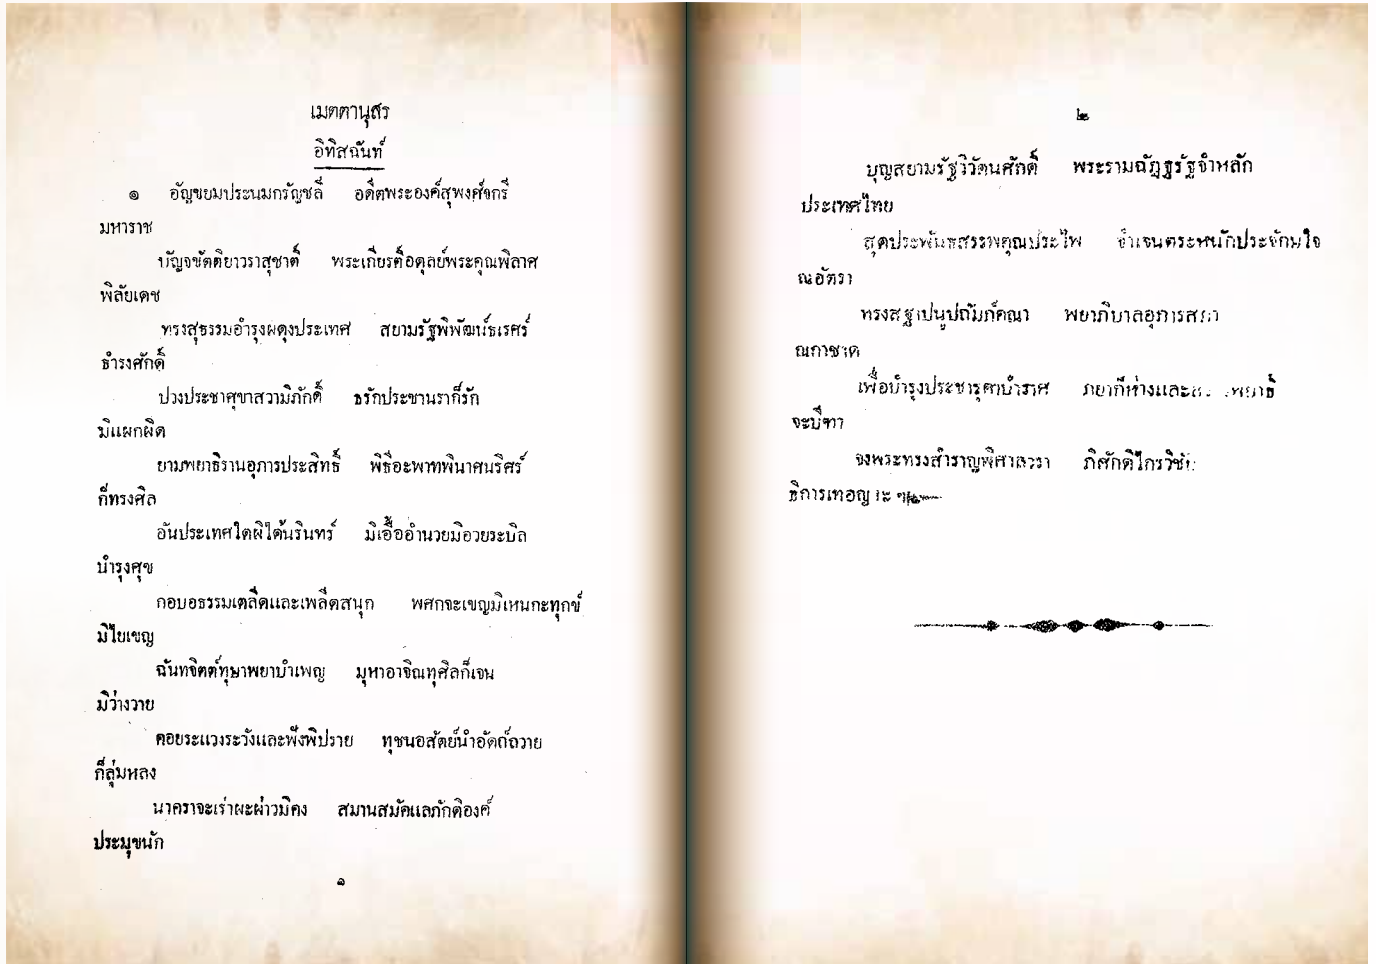 เมตตานุสร
อิทิสฉันท์
๑ อัญขยมประนมกรัญชลี อดีตพระองค์สุพงศ์จกรี
มหาราช
บัญจขัตติยาวราสุชาติ์ พระเกียรติ์อดุลย์พระคุณพิลาศ
พิลัยเดช
ทรงสุธรรมอำรุงผดุงประเทศ สยามรัฐพิพัฒน์ธเรศร์
ธำรงศักดิ์
ปวงประชาศุขาสวามิภักดิ์ ธรักประชานราก็รัก
มิแผกผิด
ยามพยาธิรานอุภารประสิทธิ์ พิธีอะพาทพินาศนริศร์
ก็ทรงศิล
อันประเทศใดผิได้นรินทร์ มิเอื้ออำนวยมิอวยระบิล
บำรุงศุข
กอบอธรรมเตลิดและเพลีดสนุก พศกจะเขญมิเหนกะทุกข์
มิไยเขญ
ฉันทจิตต์ทุษาพยาบำเพญ มุหาอาจิณทุศิลก็เจน
มิว่างวาย
คอยระแวงระวังและพึงพิปราย ทุชนอสัตย์นำอัตถ์ถวาย
ก็ลุ่มหลง
นาคราจะเร่าผะผ่าวมิคง สมานสมัคแลภักดิองค์
ประมุขนัก
๑
๒
บุญสยามรัฐวิวัฒนศักดิ์ พระรามฉัฎฐรัฐจำหลัก
ประเทศไทย
สุดประพันธสรรพคุณประไพ จำเจนตระหนักประจักษใจ
ณอัตรา
ทรงสฐาปนูปถัมภ์คณา พยาภิบาลอุภารสภา
ณกาชาด
เพื่อบำรุงประชารุคาบำราศ ภยาก็ห่างและ พยาธิ์
จะบีฑา
จงพระทรงสำราญพิศาลวรา ภิศักดิไกรวิชัย
ธิการเทอญ